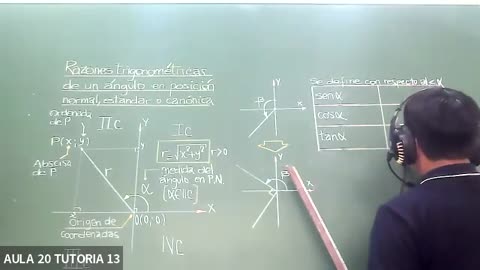 Razones trigonométricas
de un ángulo en posición
normal, estándar o canónica
Ordenada
de P
IIC
P(x;y)
Abscisa
de P
r
IC
r=√x²+y²
r>0
medida del
ángulo en P.N.
α
[α∈IIC]
x
y
X
Origen de
coordenadas
O(0;0)
IVC
Y
β
X
Y
β
X
Se define con respecto al
senα
cosα
tanα
AULA 20 TUTORIA 13